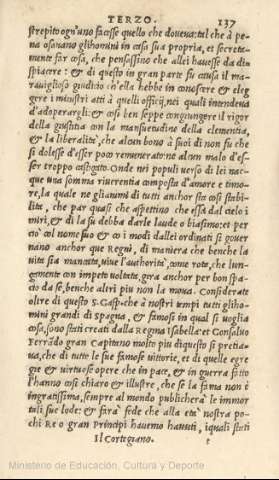 TERZO. 137
strepito ogn'uno facesse quello che doueua: tal che à pe-
na osauano gli homini in casa sua propria, et secreta-
mente far cosa, che pensassino che allei hauesse da di-
spiacere: & di questo in gran parte fu causa il ma-
rauiglioso giudicio ch'ella hebbe in conoscere & eleg
gere i ministri atti à quelli officij, nei quali intendeua
d'adoperargli: & cosi ben seppe congiungere il rigor
della giustitia con la mansuetudine della clementia,
& la liberalità, che alcun bono à suoi dì non fu che
si dolesse d'esser poco remunerato: ne alcun malo d'es-
ser troppo castigato. Onde nei populi uerso di lei nac-
que una somma riuerentia composta d'amore e timo-
re, la quale ne gli animi di tutti anchor sta cosi stabi-
lita, che par quasi che aspettino che essa dal cielo i
miri, & di la su debba darle laude o biasimo: et per
ciò col nome suo & co i modi dallei ordinati si gouer
nano anchor que Regni, di maniera che benche la
uita sia mancata, uiue l'authorità, come rote, che lun-
gamente con impeto uoltate, gira anchor per bon spa-
cio da se, benche altri piu non la moua. Considerate
oltre di questo S. Gasp. che à nostri tempi tutti gli ho-
mini grandi di Spagna, & famosi in qual si uoglia
cosa, sono stati creati dalla Regina Isabella: et Consaluo
Ferrãdo gran Capitano molto piu di questo si pretia-
ua, che di tutte le sue famose uittorie, et di quelle egre
gie & uirtuose opere che in pace, & in guerra fatto
l'hanno cosi chiaro & illustre, che se la fama non è
ingratissima, sempre al mondo publicherà le immor
tali sue lode: & farà fede che alla età nostra po-
chi Re o gran Principi hauemo hauuti, iquali stati
Il Cortegiano. t
Ministerio de Educación, Cultura y Deporte